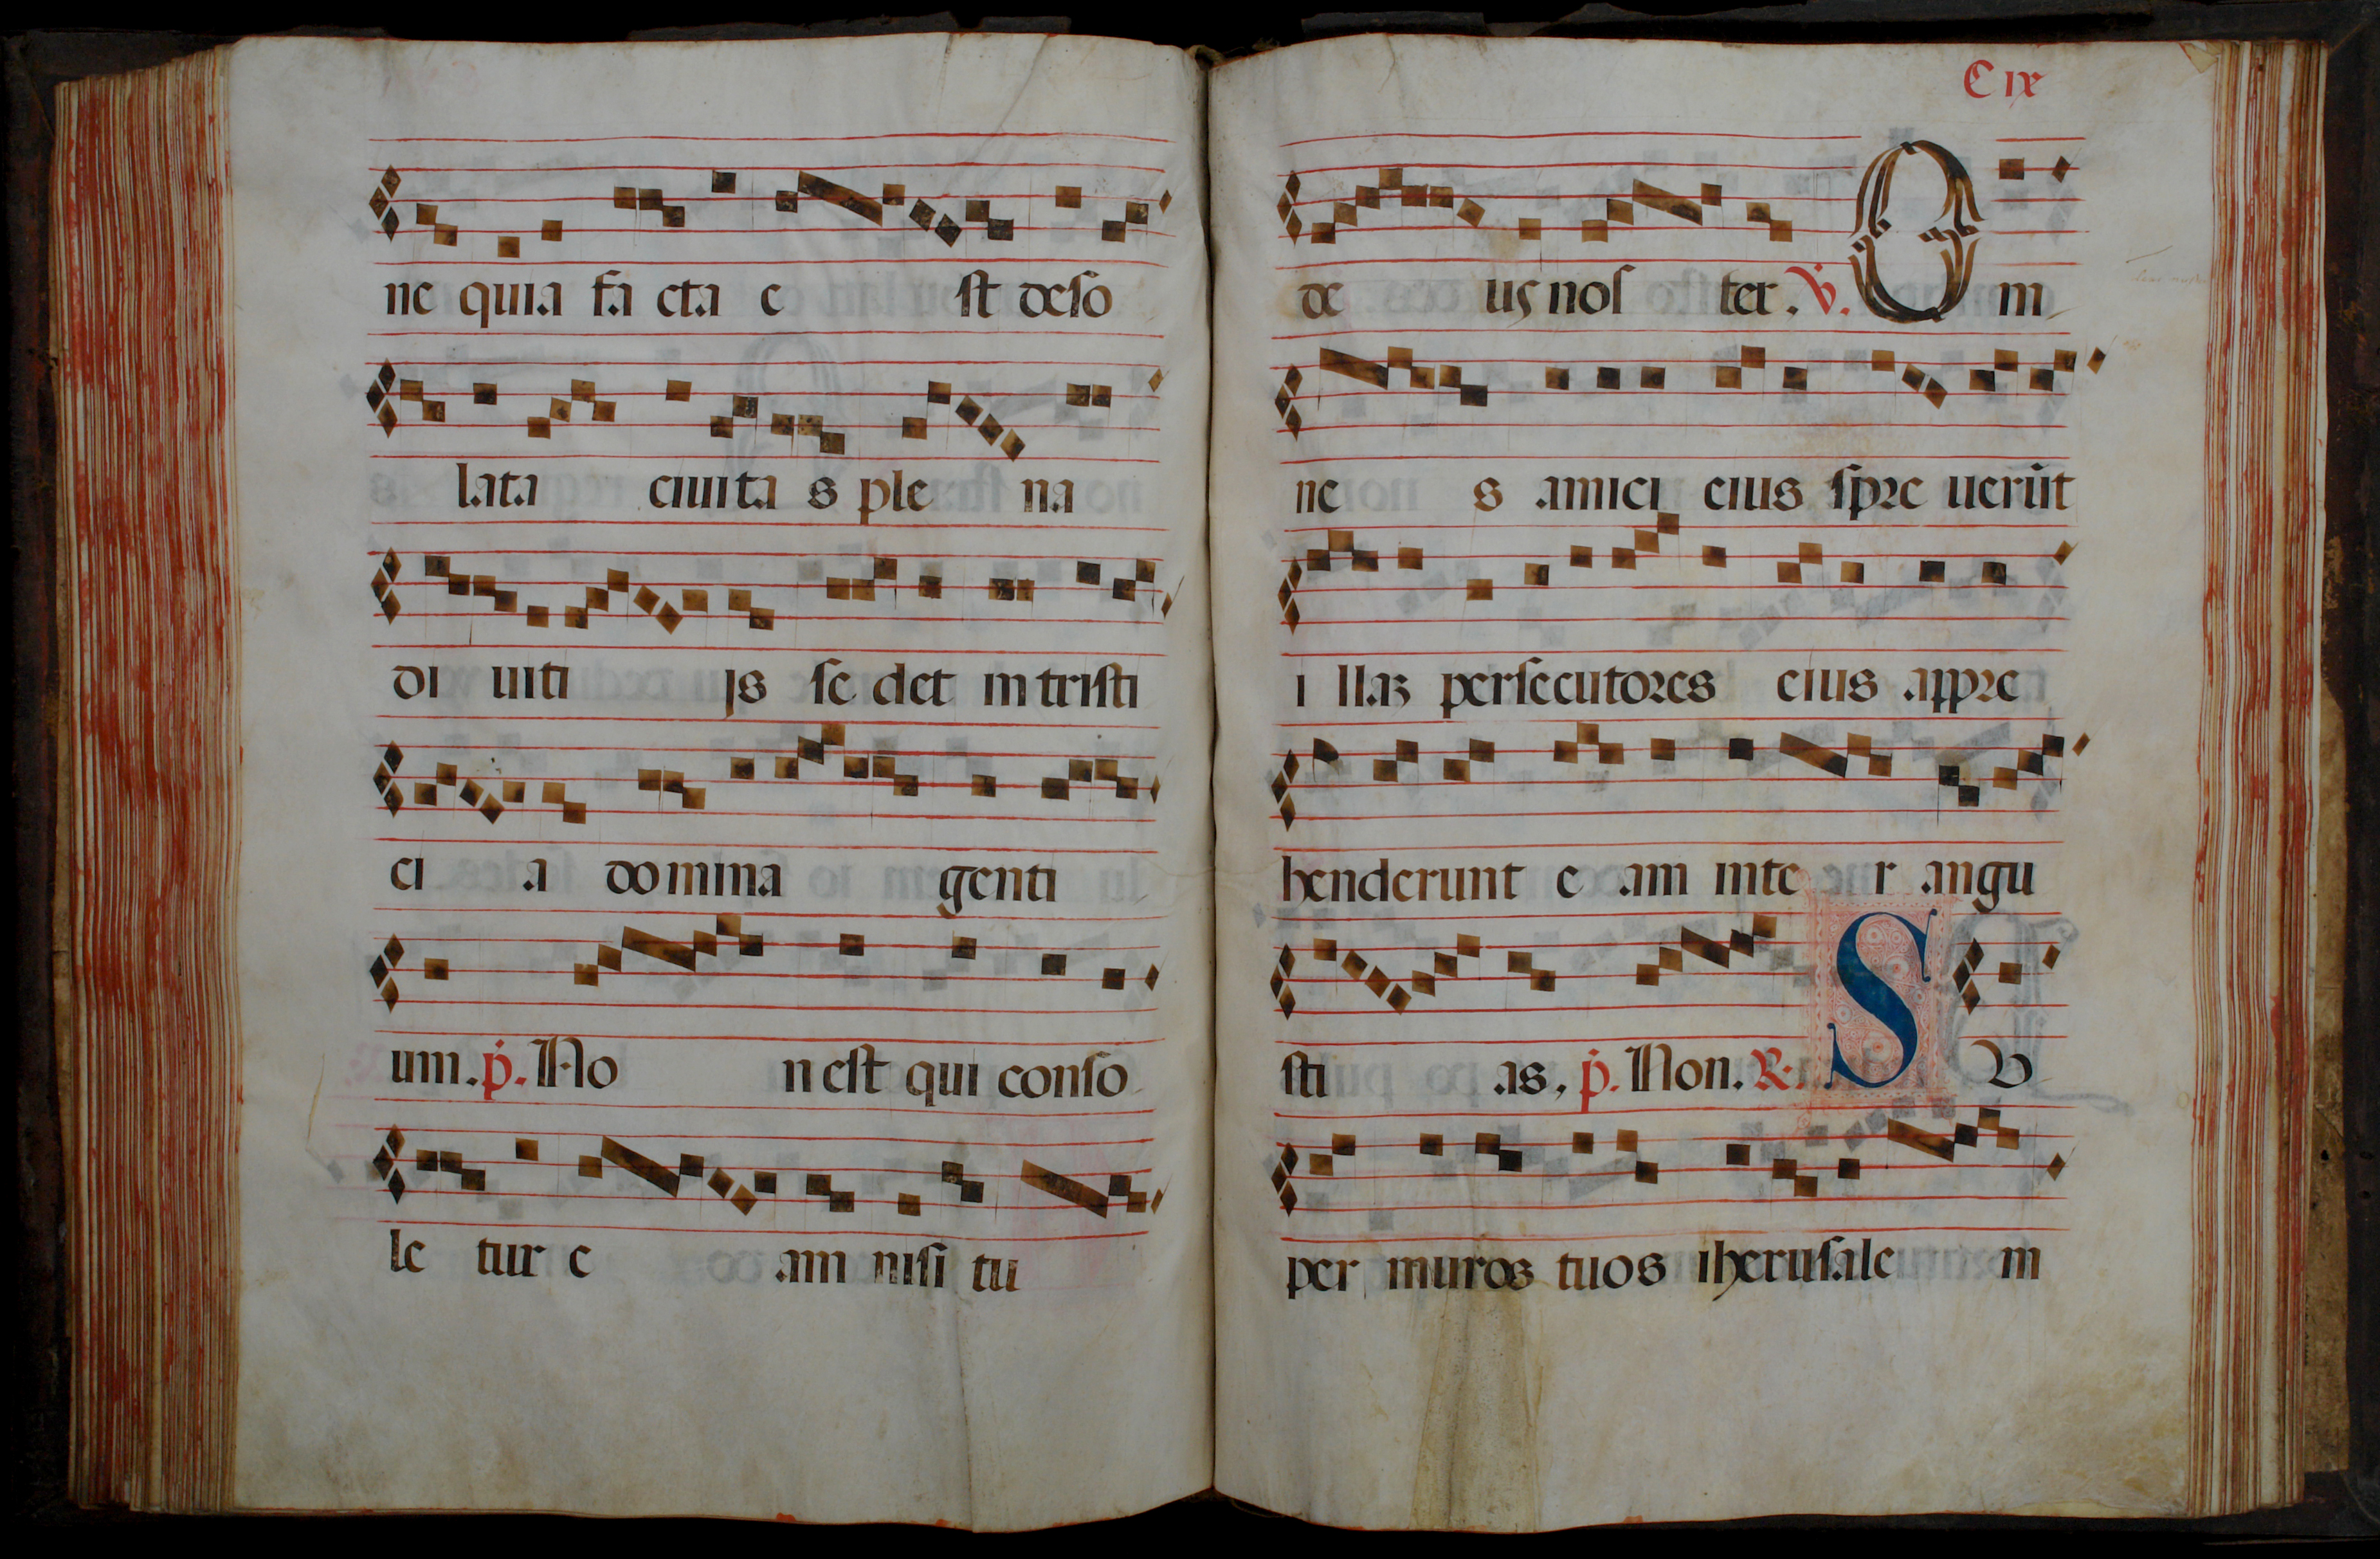 ne quia fa cta e st deso
lata ciuita s ple na
di uiti js se det in tristi
ci a domina genti
um. p. No n est qui conso
le tur e am nisi tu
C ix
de us nos ter. V. O m
ne s amici eius spre uerūt
i llaz persecutores eius appre
henderunt e am inte r angu
sti as, p. Non. R. S V
per muros tuos iherusale m